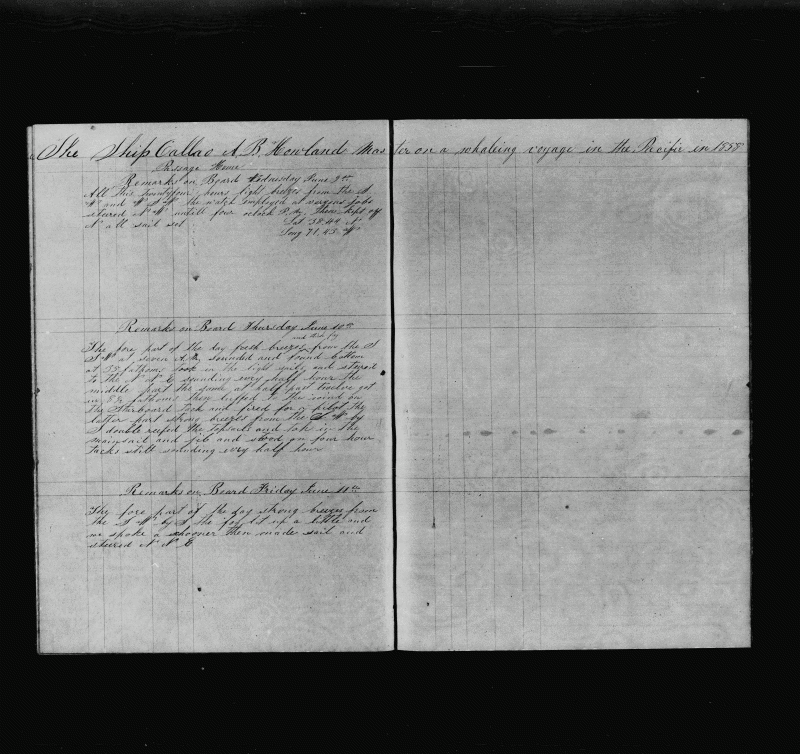 The Ship Callao A. R. Howland Master on a whaleing voyage in the Pacific in 1858
Passage Home
Remarks on Board Wednesday June 9th
All this twentyfour hours light breezes from the S
W and W S W the watch employed at various jobs
steured N W untill four oclock P.M. then kept off
N all sail set Lat 38.44 N
Long 71.43 W
Remarks on Board Thursday June 10th
and thick fog
The fore part of the day fresh breezes from the S
S W at seven A.M. sounded and found bottom
at 38 fathoms took in the light sails and steured
to the N N E sounding every half hour the
middle part the same at half past twelve got
in fathoms then luffed to the wind on
the Starboard tack and fired for a pilot the
latter part strong breezes from the S W by
S double reefed the topsails and took in the
mainsail and jib and stood on four hour
tacks still sounding evry half hour
Remarks on Board Friday June 11th
The fore part of the day strong breezes from
the S W by S the fog let up a little and
we spoke a schooner then made sail and
steured N N E